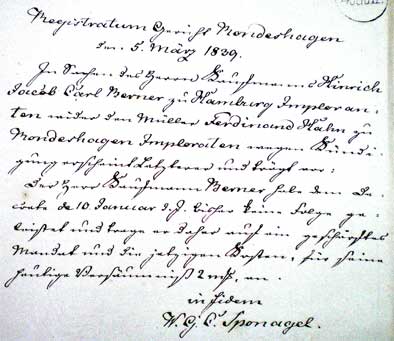 Registratum Gericht Mondeshagen
den 5. März 1839.
In Sachen des Herrn Kaufmanns Hinrich
Jacob Carl Berner zu Hamburg Imploran-
ten wider den Müller Ferdinand Hahn zu
Mondeshagen Imploraten wegen Kündi-
gung erscheint Letzterer und trägt vor:
Der Herr Kaufmann Berner habe dem De-
crete de 10 Januar d. J. bisher keine Folge ge-
leistet und trage er daher auf ein geschärftes
Mandat und die jetzigen Kosten, für seine
heutige Versäumniß 2 mß, an.
in fidem
W. Cj. C. Sponagel.